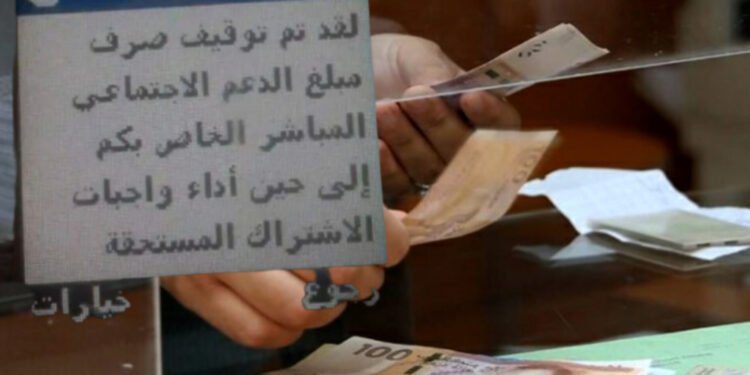 لقد تم توقيف صرف
مبلغ الدعم الاجتماعي
المباشر الخاص بكم
إلى حين أداء واجبات
الاشتراك المستحقة
رجوع
خيارات
100